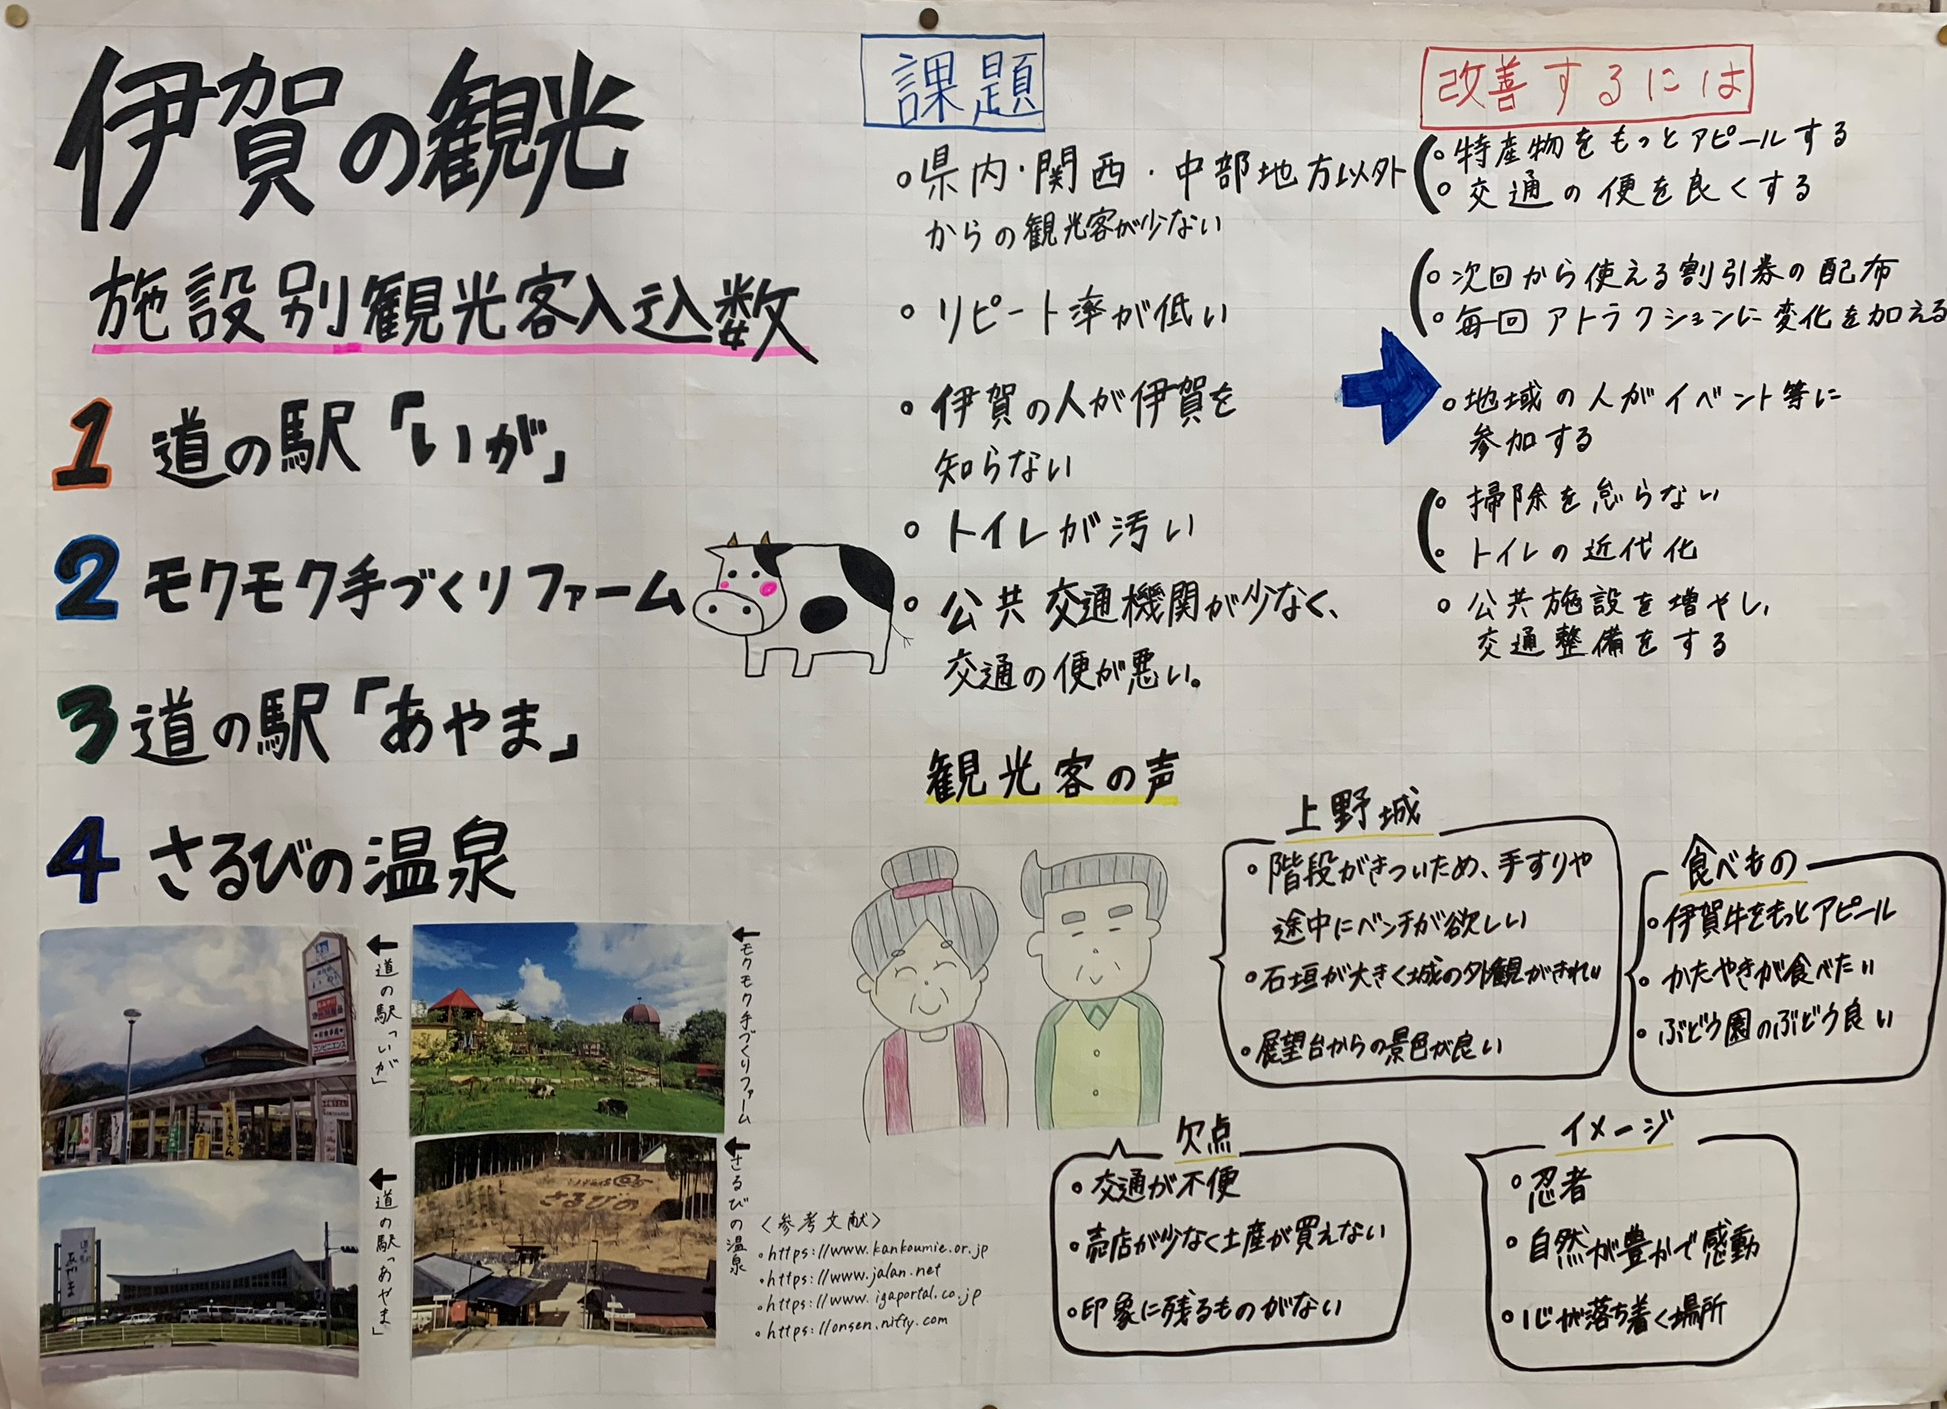 伊賀の観光
施設別観光客入込数
1 道の駅「いが」
2 モクモク手づくりファーム
3 道の駅「あやま」
4 さるびの温泉
←道の駅「いが」
←モクモク手づくりファーム
←道の駅「あやま」
←さるびの温泉
さるびの
あやま
〈参考文献〉
・https://www.kankoumie.or.jp
・https://www.jalan.net
・https://www.igaportal.co.jp
・https://onsen.nifty.com
課題
・県内・関西・中部地方以外
からの観光客が少ない
・リピート率が低い
・伊賀の人が伊賀を
知らない
・トイレが汚い
・公共交通機関が少なく、
交通の便が悪い。
改善するには
・特産物をもっとアピールする
・交通の便を良くする
・次回から使える割引券の配布
・毎回アトラクションに変化を加える
・地域の人がイベント等に
参加する
・掃除を怠らない
・トイレの近代化
・公共施設を増やし、
交通整備をする
観光客の声
上野城
・階段がきついため、手すりや
途中にベンチが欲しい
・石垣が大きく城の外観がきれい
・展望台からの景色が良い
食べもの
・伊賀牛をもっとアピール
・かたやきが食べたい
・ぶどう園のぶどう良い
欠点
・交通が不便
・売店が少なく土産が買えない
・印象に残るものがない
イメージ
・忍者
・自然が豊かで感動
・心が落ち着く場所